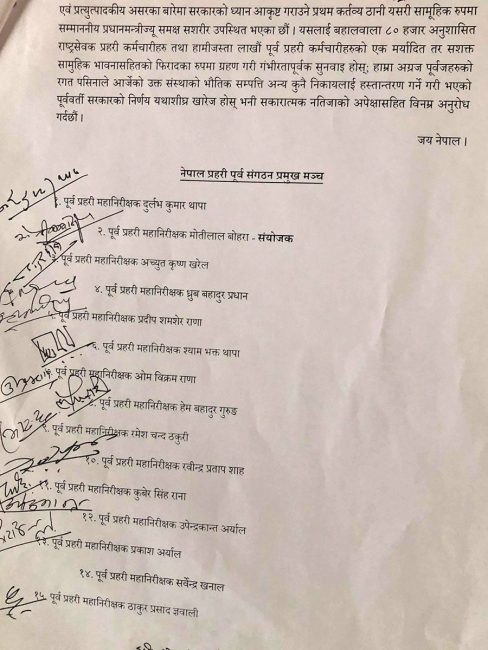 एवं प्रत्युत्पादकीय असरका बारेमा सरकारको ध्यान आकृष्ट गराउने प्रथम कर्तव्य ठानी यसरी सामूहिक रुपमा
सम्माननीय प्रधानमन्त्रीज्यू समक्ष सशरीर उपस्थित भएका छौं । यसलाई बहालवाला ८० हजार अनुशासित
राष्ट्रसेवक प्रहरी कर्मचारीहरु तथा हामीजस्ता लाखौं पूर्व प्रहरी कर्मचारीहरुको एक मर्यादित तर सशक्त
सामुहिक भावनासहितको फिरादका रुपमा ग्रहण गरी गंभीरतापूर्वक सुनवाइ होस्; हाम्रा अग्रज पूर्वजहरुको
रगत पसिनाले आर्जेको उक्त संस्थाको भौतिक सम्पत्ति अन्य कुनै निकायलाई हस्तान्तरण गर्ने गरी भएको
पूर्ववर्ती सरकारको निर्णय यथाशीघ्र खारेज होस् भनी सकारात्मक नतिजाको अपेक्षासहित विनम्र अनुरोध
गर्दछौं ।
जय नेपाल ।
नेपाल प्रहरी पूर्व संगठन प्रमुख मञ्च
१. पूर्व प्रहरी महानिरीक्षक दुर्लभ कुमार थापा
२. पूर्व प्रहरी महानिरीक्षक मोतीलाल बोहरा - संयोजक
पूर्व प्रहरी महानिरीक्षक अच्युत कृष्ण खरेल
४. पूर्व प्रहरी महानिरीक्षक ध्रुब बहादुर प्रधान
५. पूर्व प्रहरी महानिरीक्षक प्रदीप शमशेर राणा
६. पूर्व प्रहरी महानिरीक्षक श्याम भक्त थापा
पूर्व प्रहरी महानिरीक्षक ओम विक्रम राणा
८. पूर्व प्रहरी महानिरीक्षक हेम बहादुर गुरुङ
९. पूर्व प्रहरी महानिरीक्षक रमेश चन्द ठकुरी
१०. पूर्व प्रहरी महानिरीक्षक रवीन्द्र प्रताप शाह
११. पूर्व प्रहरी महानिरीक्षक कुबेर सिंह राना
१२. पूर्व प्रहरी महानिरीक्षक उपेन्द्रकान्त अर्याल
१३. पूर्व प्रहरी महानिरीक्षक प्रकाश अर्याल
१४. पूर्व प्रहरी महानिरीक्षक सर्वेन्द्र खनाल
१५. पूर्व प्रहरी महानिरीक्षक ठाकुर प्रसाद ज्ञवाली